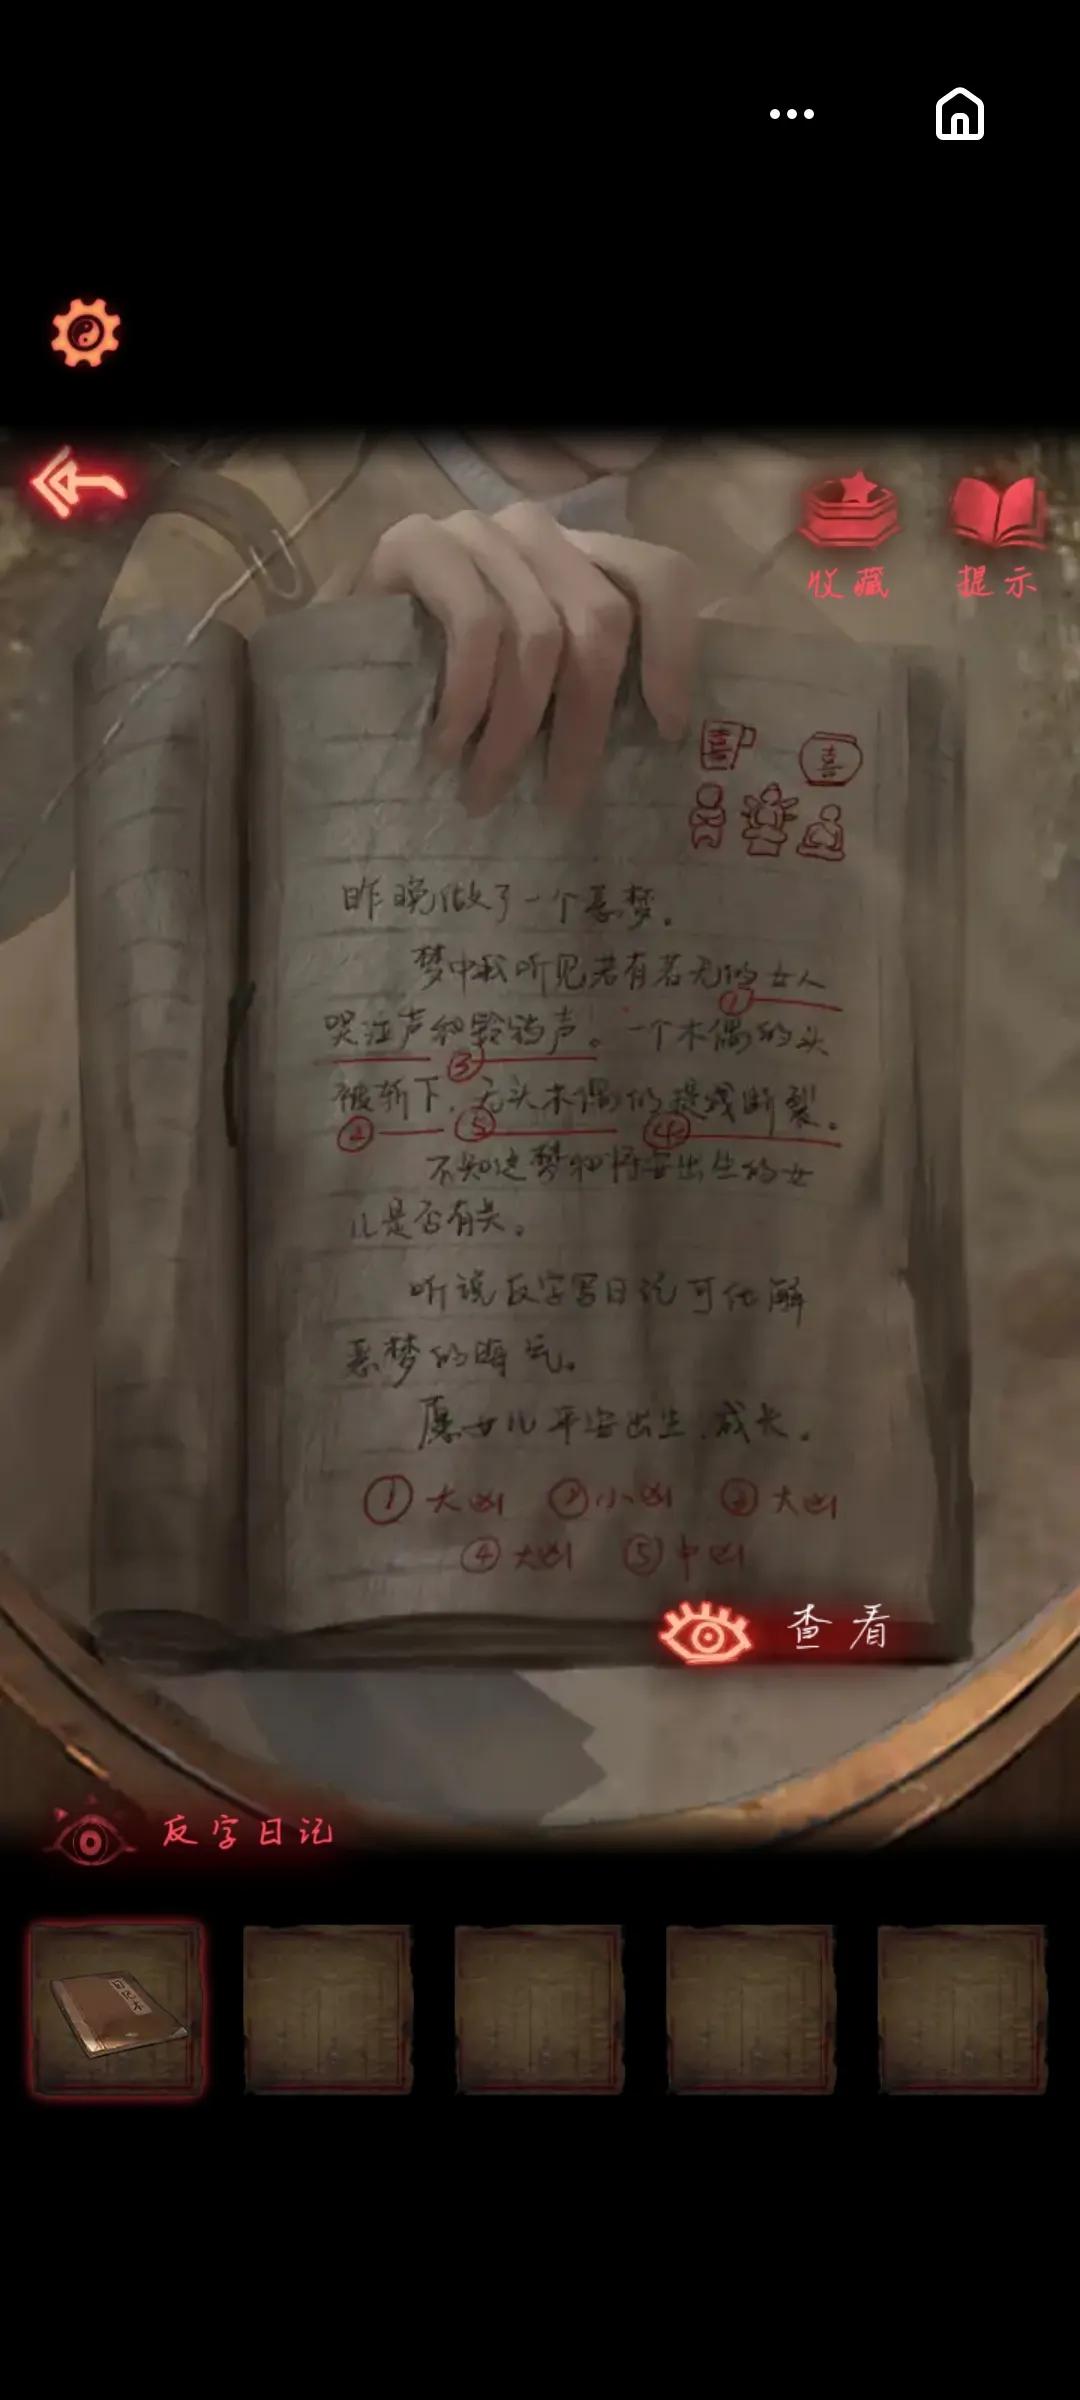 收藏
提示
喜
喜
昨晚做了一个恶梦。
梦中我听见若有若无的女人
①
哭泣声和铃铛声。一个木偶的头
③
被斩下,无头木偶的提线断裂。
② ⑤ ④
不知这梦和将要出生的女
儿是否有关。
听说反字写日记可化解
恶梦的晦气。
愿女儿平安出生、成长。
①大凶 ②小凶 ③大凶
④大凶 ⑤中凶
查看
反字日记
日记本